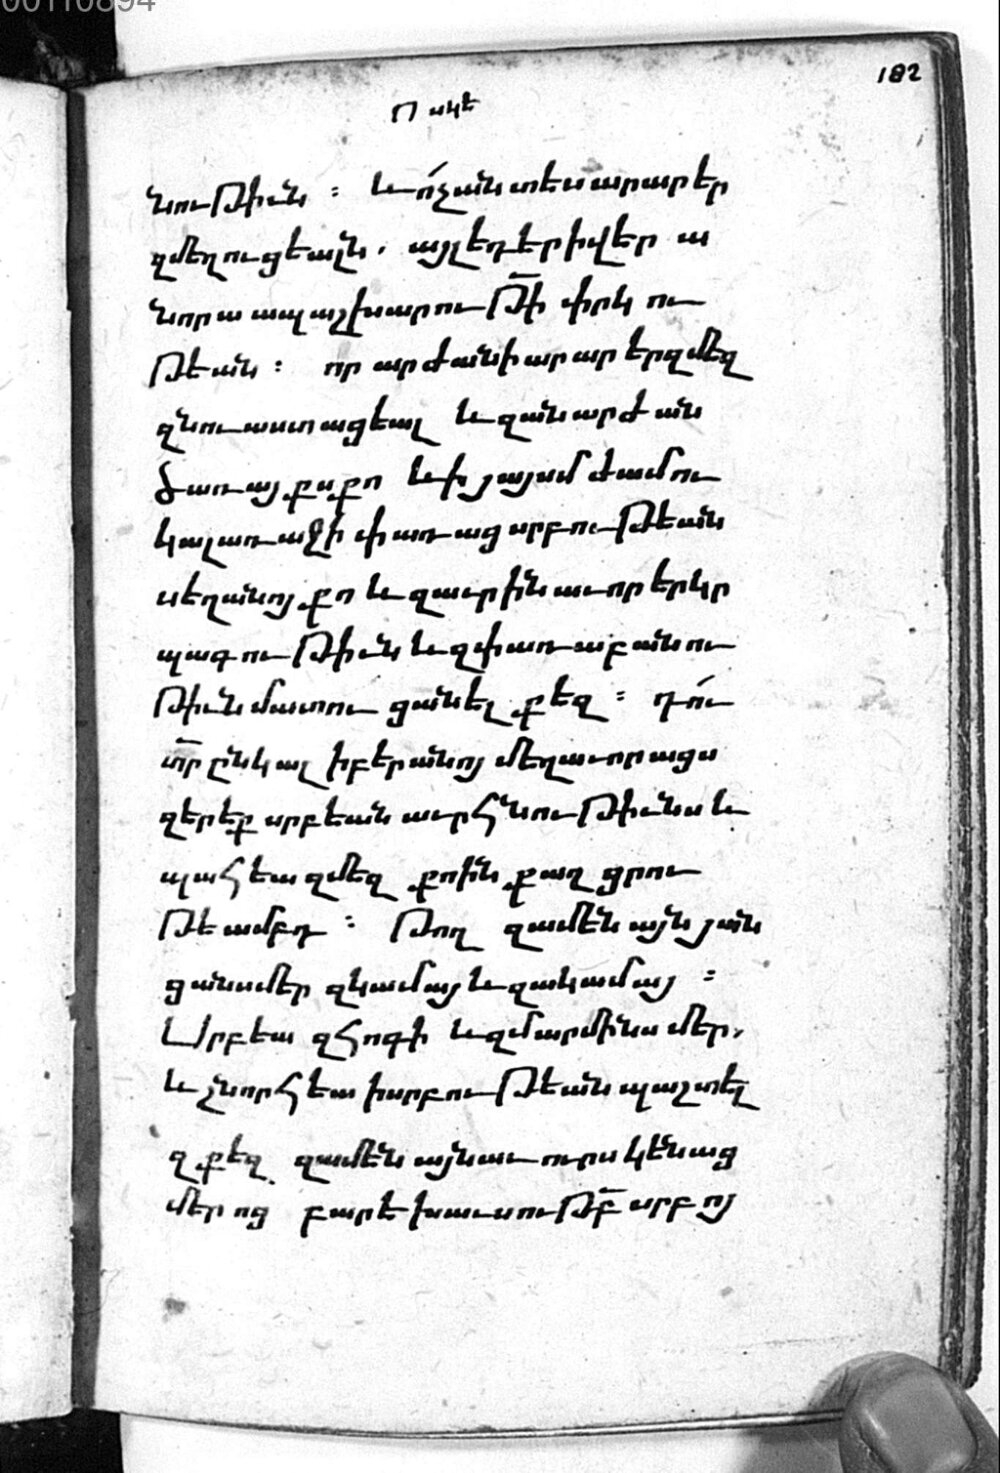 00110894
182
Ոսկե
նութիւն ։ և ո՛չ անտես արարեր
զմեղուցեալն, այլ եդեր ի վեր ա
նորա ապաշխարութի̄ փրկու
թեան ։ որ արժանի արարեր զմեզ
զնուաստացեալ և զանարժան
ծառայքս քո և ի յայսմ ժամու
կալ առաջի փառաց սրբութեան
սեղանոյ քո և զաւրինաւոր երկր
պագութիւն և զփառաբանու
թիւն մատուցանել քեզ ։ դո՛ւ
տ̄ր ընկալ ի բերանոյ մեղաւորացս
զերեքսրբեան աւրհնութիւնս և
պահեա զմեզ քոին քաղցրու
թեամբդ ։ Թող զամենայն յան
ցանս մեր զկամայ և զակամայ ։
Սրբեա զհոգի և զմարմինս մեր,
և շնորհեա ի սրբութեան պաշտել
զքեզ զամենայն աւուրս կենաց
մերոց բարեխաւսութբ̄ սրբոյ